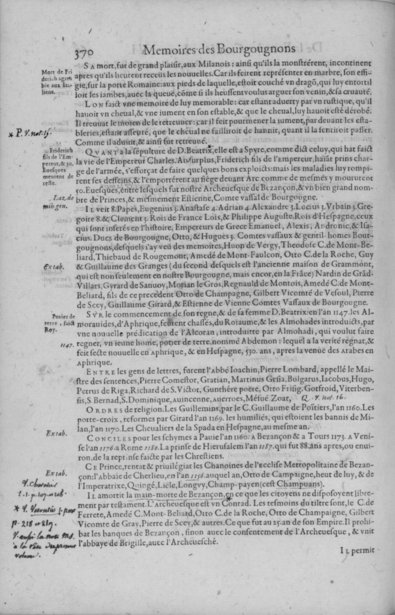 370 Memoires des Bourgougnons
SA mort, fut de grand plaisir, aux Milanois: ainsi qu'ils la monstrérent, incontinent
Mort de Fri
derich agrea
ble aux Ita-
liens.
apres qu'ils heurent receüs les nouuelles. Car ils feirent représenter en marbre, son effi-
gie, sur la porte Romaine: aux pieds de laquelle, estoit couché vn dragõ, qui luy entor-
toit les iambes, auec la queuë, cõme si ils heussent voulus arguer son venin, & sa cruauté.
LON fasct vne memoire de luy memorable: car estant aduerty par vn rustique, qu'il
hauoit vn cheual, & vne iument en son estable, & que le cheual, luy hauoit esté dérobé.
Comme il aduint, & ainsi fut retreuué.
QVANT à la sépulture de D. Beatrix, elle est a Spyre, comme dict celuy, qui hat faict
Friderich
fils de l'Em-
la vie de l'Empereur Charles. Au surplus, Friderich fils de l'empereur, haïse prins char-
ge de l'armée, s'efforçat de faire quelques bons exploits: mais les maladies luy rompi-
rent ses desseins, & l'emportérent au siége deuant Arc comme de mesmes y moururent
10. Euesques, entre lesquels fut nostre Archeuesque de Bezançon, & vn bien grand nom-
bre de Princes, & mesmement Estienne, Comte vassal de Bourgougne.
IL veit 8. Papes, Eugenius 3. Anastase 4. Adrian 4. Alexandre 3. Lucius 3. Vrbain 3. Gre-
goire 8. & Clement 3. Rois de France Lois, & Philippe Auguste, Rois d'Hespagne, ceux
qui sont inserés en l'histoire, Empereurs de Grece Emanuel, Alexis, Andronic, & Isa-
cius. Ducs de Bourgougne, Otto, & Hugues 3. Comtes vassaux & gentil-homes Bour-
gougnons, desquels i'ay veü des memoires, Huop de Vergy, Theodose C. de Mont-Be-
liard, Thiebaud de Rougemont, Amedé de Mont-Faulcon, Otto C. de la Roche, Guy
Extab.
& Guillaume des Granges (du second desquels est l'ancienne maison de Grammont,
qui est non seulement en nostre Bourgougne, mais encor, en la Frãce) Nardin de Grãd-
Villars, Gyrard de Sanuoy, Morian le Gros, Regnauld de Montois, Amedé C. de Mont-
Beliard, fils de ce precédent Otto de Champagne, Gilbert Vicomté de Vesoul, Pierre
de Scey, Guillaume Girard, & Etienne de Vienne Comtes Vassaux de Bourgougne.
SVR le commencement de son regne, & de sa femme D. Beatrix en l'an 1147. les Al-
morauides, d'Aphrique, feirent chassés, du Royaume, & les Almohades introduicts, par
vne nouuelle prédication de l'Alcoran, introduitte par Almohadi, qui voulut faire
1147.
regner, vn ieune home, potier de terre, nommé Abdemon: lequel a la verité régnat, &
feit secte nouuelle en Aphrique, & en Hespagne, 550. ans, apres la venüe des Arabes en
aphrique.
ENTRE les gens de lettres, furent l'abbé Ioachin, Pierre Lombard, appellé le Mai-
stre des sentences, Pierre Comestor, Gratian, Martinus Gosia, Bulgarus, Iacobus, Hugo,
Petrus de Riga, Richard de S. Victor, Guntére poëte, Otto Frisig. Gotfroid, Viterben-
sis, S. Bernad, S. Dominique, auincenne, auerroes, Mésué Zoar,
ORDRES de religion. Les Guillemins, par le C. Guillaume de Poitiers, l'an 1160. Les
porte-croix, reformez par Girard l'an 1169. les humiliés, qui estoient les bannis de Mi-
lan, l'an 1170. Les Cheualiers de la Spada en Hespagne, au mesme an.
Extab.
CONCILES pour les schymes a Pauie l'an 1160. a Besançon & a Tours 1173. A Veni-
se l'an 1176 a Rome 1180. La prinse de Hierusalem l'an 1187. qui fut 88. ans apres, ou enui-
ron, de la reprinse faicte par les Chrestiens.
Extab.
CE Prince, renteit & priuilégiat les Chanoines de l'ecclise Metropolitaine de Bezan-
çon: l'abbaïe de Cherlieu, en l'an 1178. auquel an, Otto de Campaigne, heut de luy, & de
l'Imperatrice, Quingé, Lisle, Longvy, Champ-payen (est Champuans).
IL amortit la main-morte de Bezançon, en ce que les citoyens ne disposoyent libre-
ment par testament. L'Archeuesque est vn Conrad. Les tesmoins du tiltre sont, le C. de
Ferrete, Amedé C. Mont-Beliard, Otto C. de la Roche, Otto de Champaigne, Gilbert
Vicomte de Gray, Pierre de Scey, & autres. Ce que fut au 15. an de son Empire. Il prohi-
bat les banques de Bezançon, sinon auec le consentement de l'Archeuesque, & vuit
l'abbaye de Brigille, auec l'Archeuesché.
IL permit